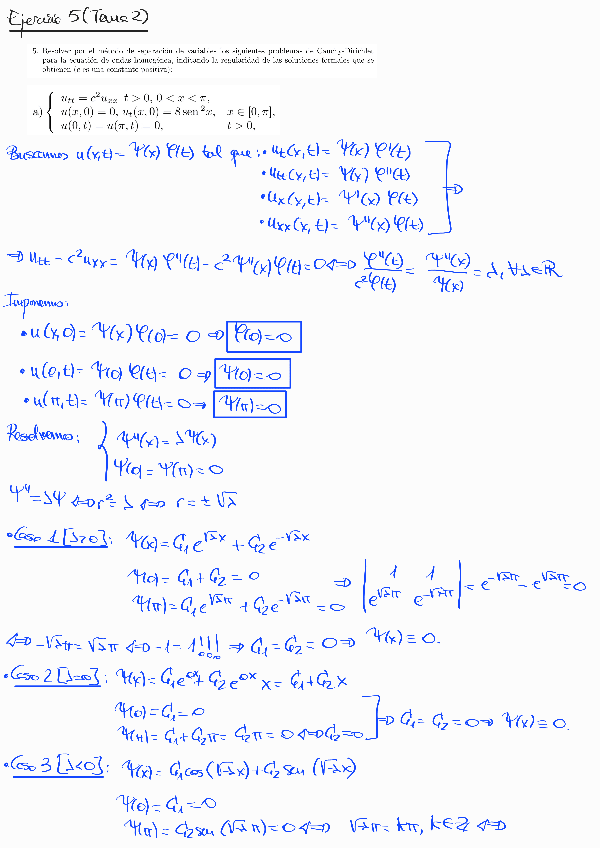 Ejercicio 5 (Tema 2)
5. Resolver por el método de separación de variables los siguientes problemas de Cauchy-Dirichlet
para la ecuación de ondas homogénea, indicando la regularidad de las soluciones formales que se
obtienen (c es una constante positiva):
a) { u_tt = c²u_xx  t > 0, 0 < x < π,
u(x,0) = 0, u_t(x,0) = 8 sen²x,  x ∈ [0,π],
u(0,t) = u(π,t) = 0,  t > 0,
Buscamos u(x,t) = Ψ(x) φ(t) tal que: • u_t(x,t) = Ψ(x) φ'(t)
• u_tt(x,t) = Ψ(x) φ''(t)
• u_x(x,t) = Ψ'(x) φ(t)
• u_xx(x,t) = Ψ''(x) φ(t) ] ⇒
⇒ u_tt - c²u_xx = Ψ(x) φ''(t) - c² Ψ''(x) φ(t) = 0 ⇔ φ''(t)/c²φ(t) = Ψ''(x)/Ψ(x) = λ, ∀λ∈ℝ
Imponemos:
• u(x,0) = Ψ(x) φ(0) = 0 ⇒ φ(0) = 0
• u(0,t) = Ψ(0) φ(t) = 0 ⇒ Ψ(0) = 0
• u(π,t) = Ψ(π) φ(t) = 0 ⇒ Ψ(π) = 0
Resolvemos: { Ψ''(x) = λΨ(x)
Ψ(0) = Ψ(π) = 0
Ψ'' = λΨ ⇔ r² = λ ⇔ r = ±√λ
• Caso 1 [λ>0]: Ψ(x) = C₁e^{√λx} + C₂e^{-√λx}
Ψ(0) = C₁ + C₂ = 0
Ψ(π) = C₁e^{√λπ} + C₂e^{-√λπ} = 0 ⇒ | 1 1 ; e^{√λπ} e^{-√λπ} | = e^{-√λπ} - e^{√λπ} = 0
⇔ -√λπ = √λπ ⇔ -1 = 1 !!! ⇒ C₁ = C₂ = 0 ⇒ Ψ(x) ≡ 0.
• Caso 2 [λ=0]: Ψ(x) = C₁e^{0x} + C₂e^{0x} x = C₁ + C₂x
Ψ(0) = C₁ = 0
Ψ(π) = C₁ + C₂π = C₂π = 0 ⇔ C₂ = 0 ] ⇒ C₁ = C₂ = 0 ⇒ Ψ(x) ≡ 0.
• Caso 3 [λ<0]: Ψ(x) = C₁cos(√-λx) + C₂ sen(√-λx)
Ψ(0) = C₁ = 0
Ψ(π) = C₂sen(√-λπ) = 0 ⇔ √-λπ = kπ, k∈ℤ ⇔